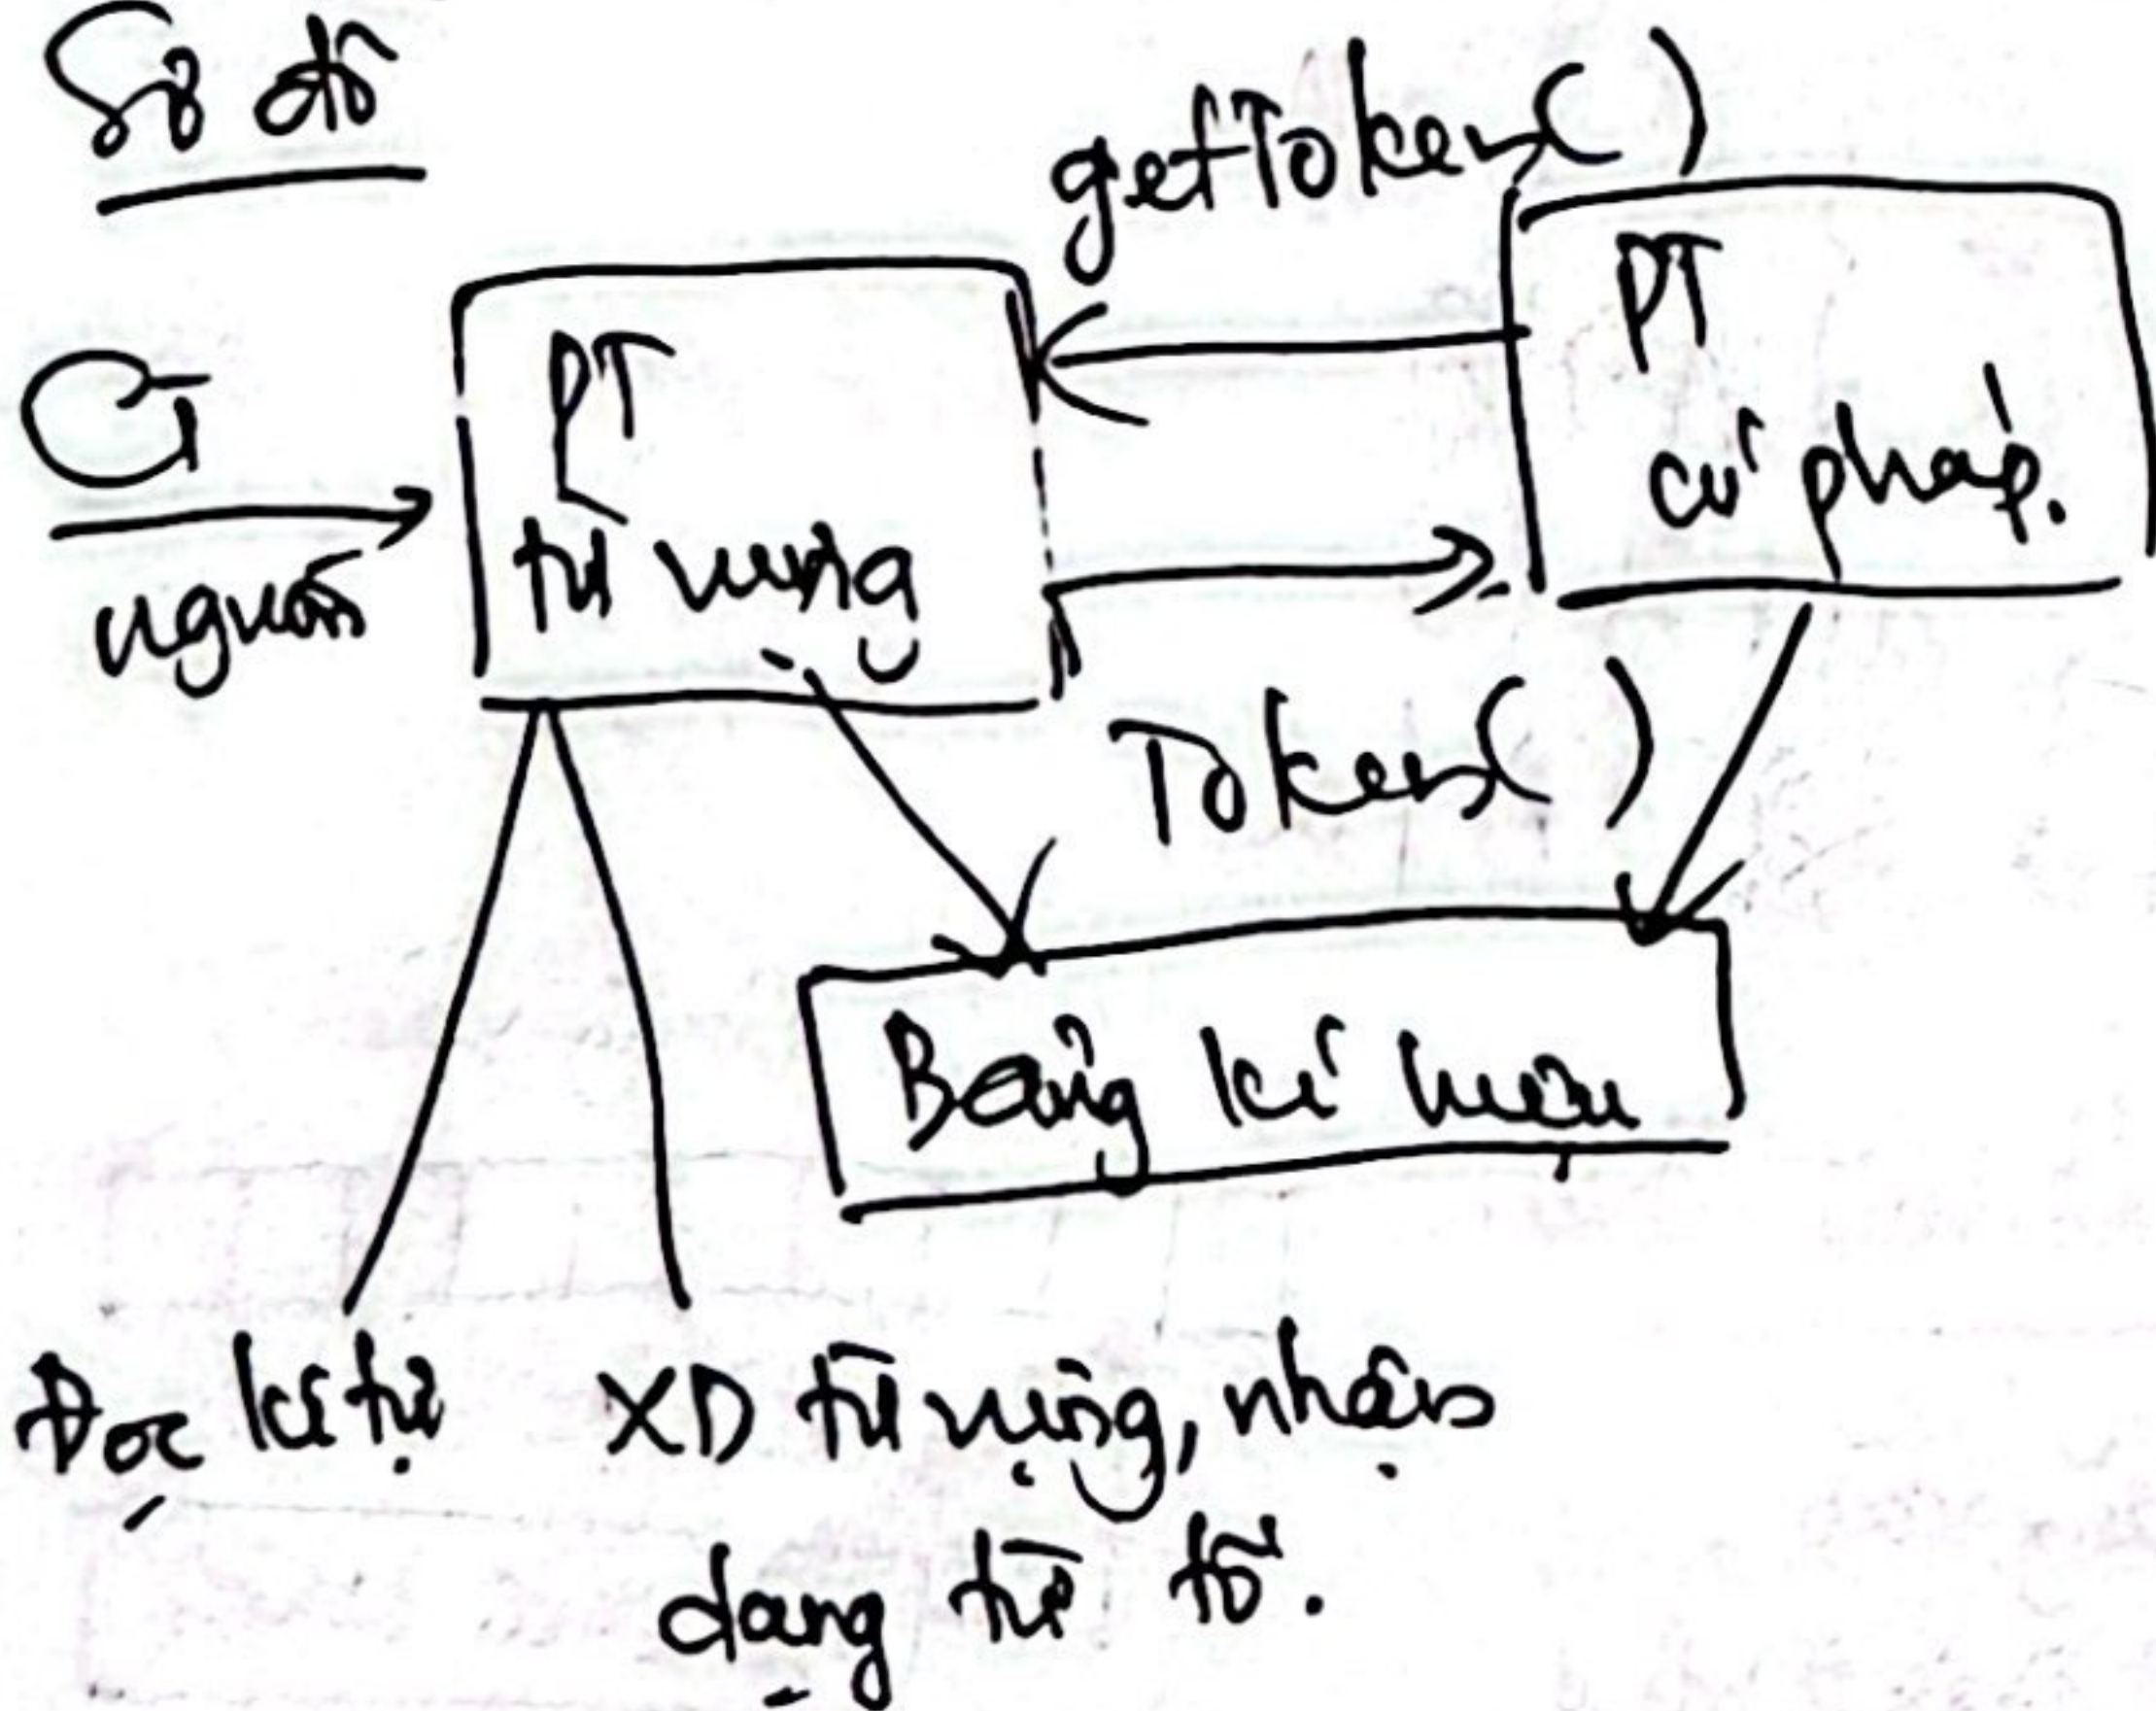 Sơ đồ
getToken()
PT
cú pháp.
PT
từ vựng
nguồn
Token()
Bảng kí hiệu
Đọc kí tự
XD từ vựng, nhận
dạng từ tố.